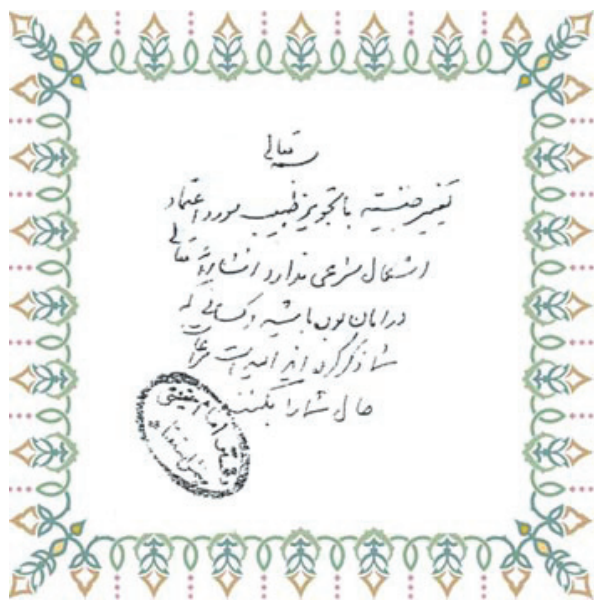 بسمه تعالی
تغییر جنسیت با تجویز طبیب مورد اعتماد
اشکال شرعی ندارد انشاءالله تعالی
در امان بوده باشید و کسانی که
شما ذکر کرده‌اید امید است مراعات
حال شما را بکنند
دفتر امام خمینی